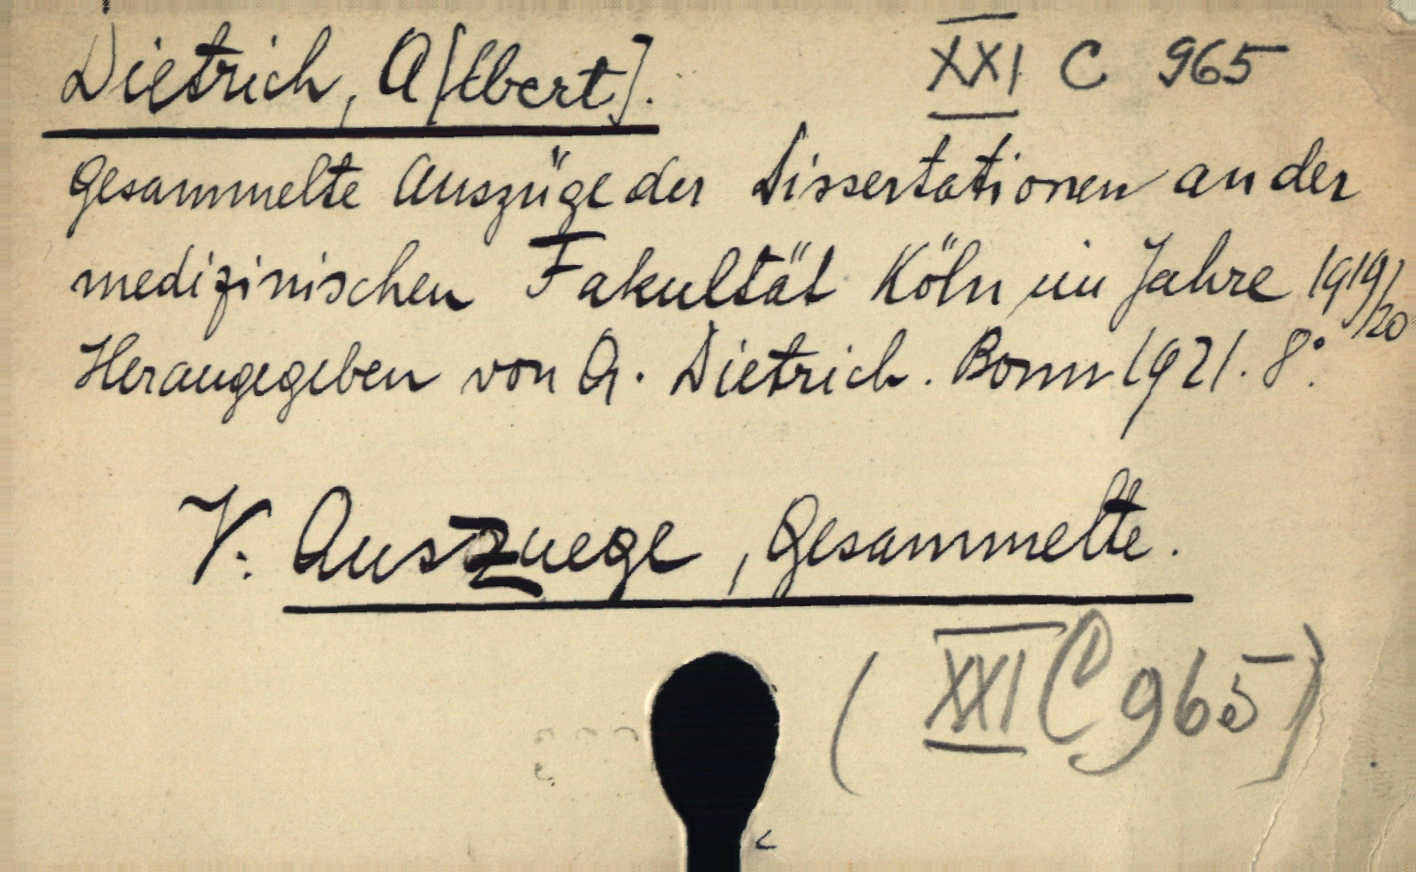 Dietrich, A[lbert]. XXI C 965
Gesammelte Auszüge der Dissertationen an der
medizinischen Fakultät Köln im Jahre 1919/20
Herangegeben von A. Dietrich. Bonn 1921. 8°.
V. Auszuege, Gesammelte.
(XXI C 965)